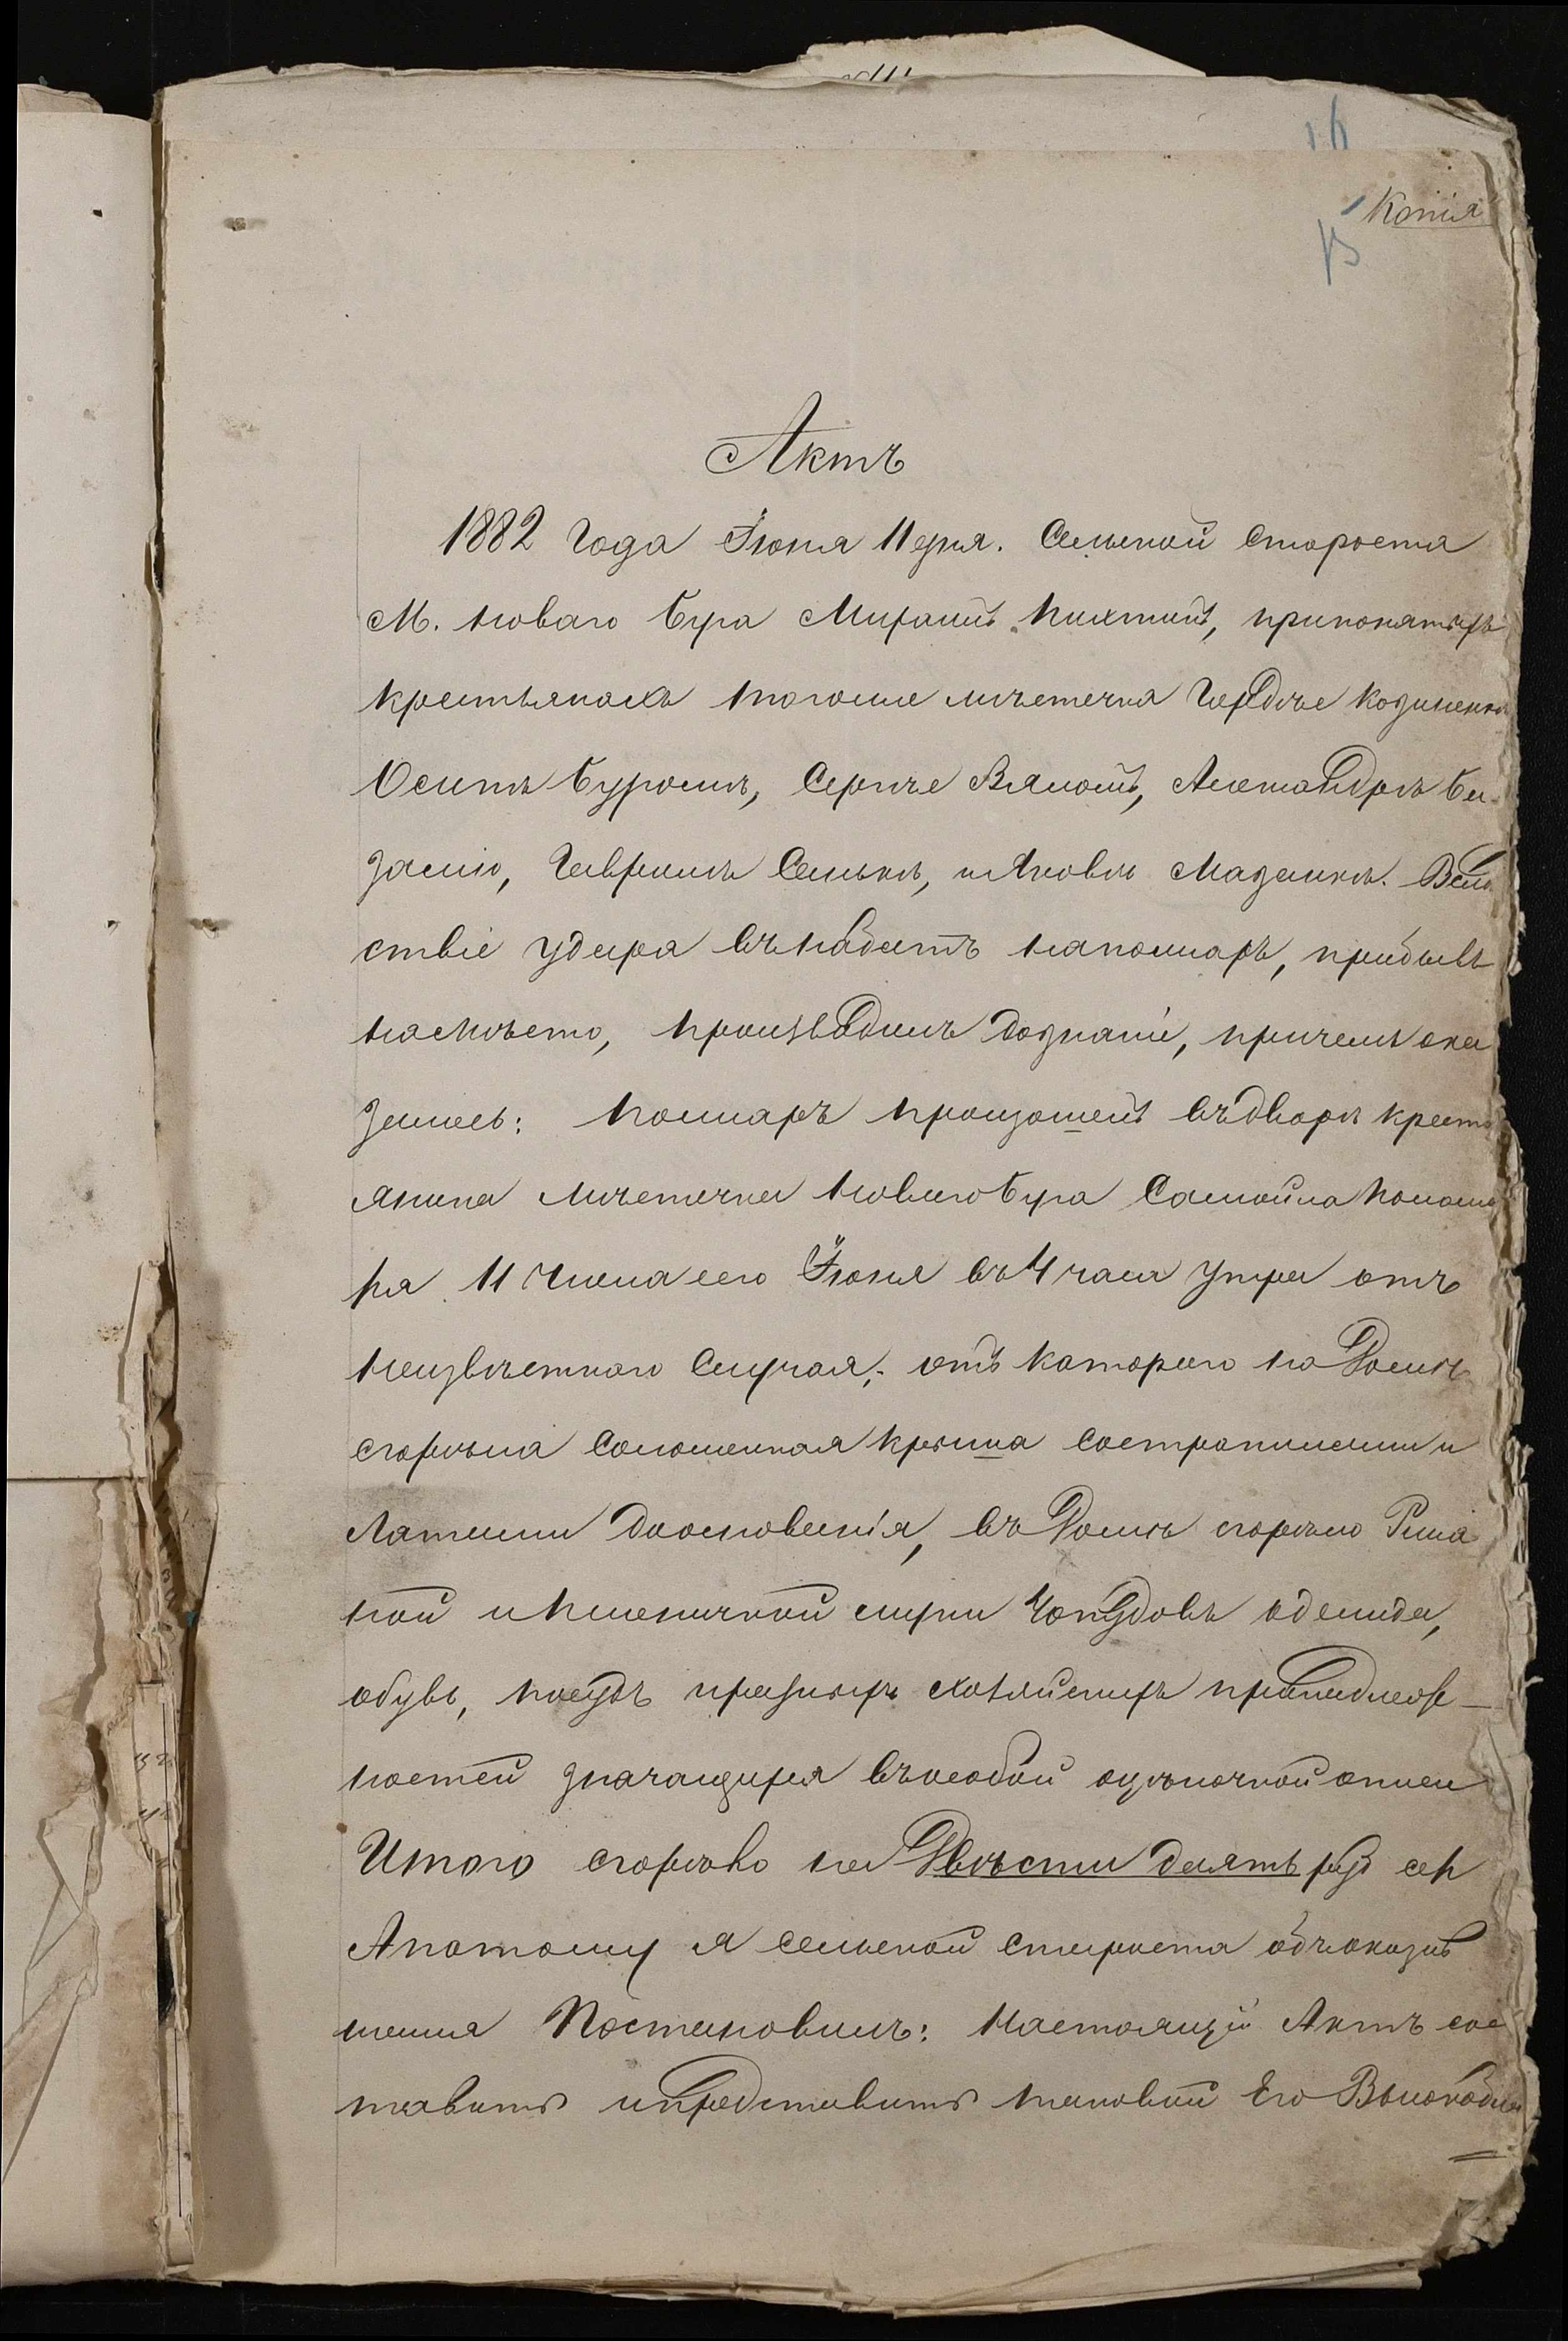 Копія
Актъ
1882 года Іюня 11 дня. Сельской Староста
М. Новаго Буга Миронъ Пихтинъ, припонятыхъ
крестьянахъ тогоже мѣстечка
Осипѣ Буромъ, Сергѣе Александрѣ Бы-
Гаврилѣ Сенькѣ, и Яковѣ Мазанкѣ. Вслѣд
ствіе удара въ набатъ напожаръ, прибывъ
на мѣсто, производилъ дознаніе, причемъ ока
залось: пожаръ произошелъ въ дворѣ кресть
янина мѣстечка Новаго Буга Самойла Понома
ря 11 числа сего Іюня въ 4 часа утра отъ
неизвѣстнаго случая; отъ котораго на домѣ
сгорѣла соломенная крыша состропилами и
латами дооснованія, въ домѣ сгорѣло Ржа
ной и пшеничной муки пудовъ одежда,
обувь, посудъ и разныхъ хозяйскихъ принадлеж-
ностей значащихся въ особой оцѣночной описи
Итого сгорѣло на Двѣсти десять руб сер
Апотому я сельской староста обоказав
шемся Постановилъ: настоящій Актъ сос
тавить и представить таковой Его Высокобла